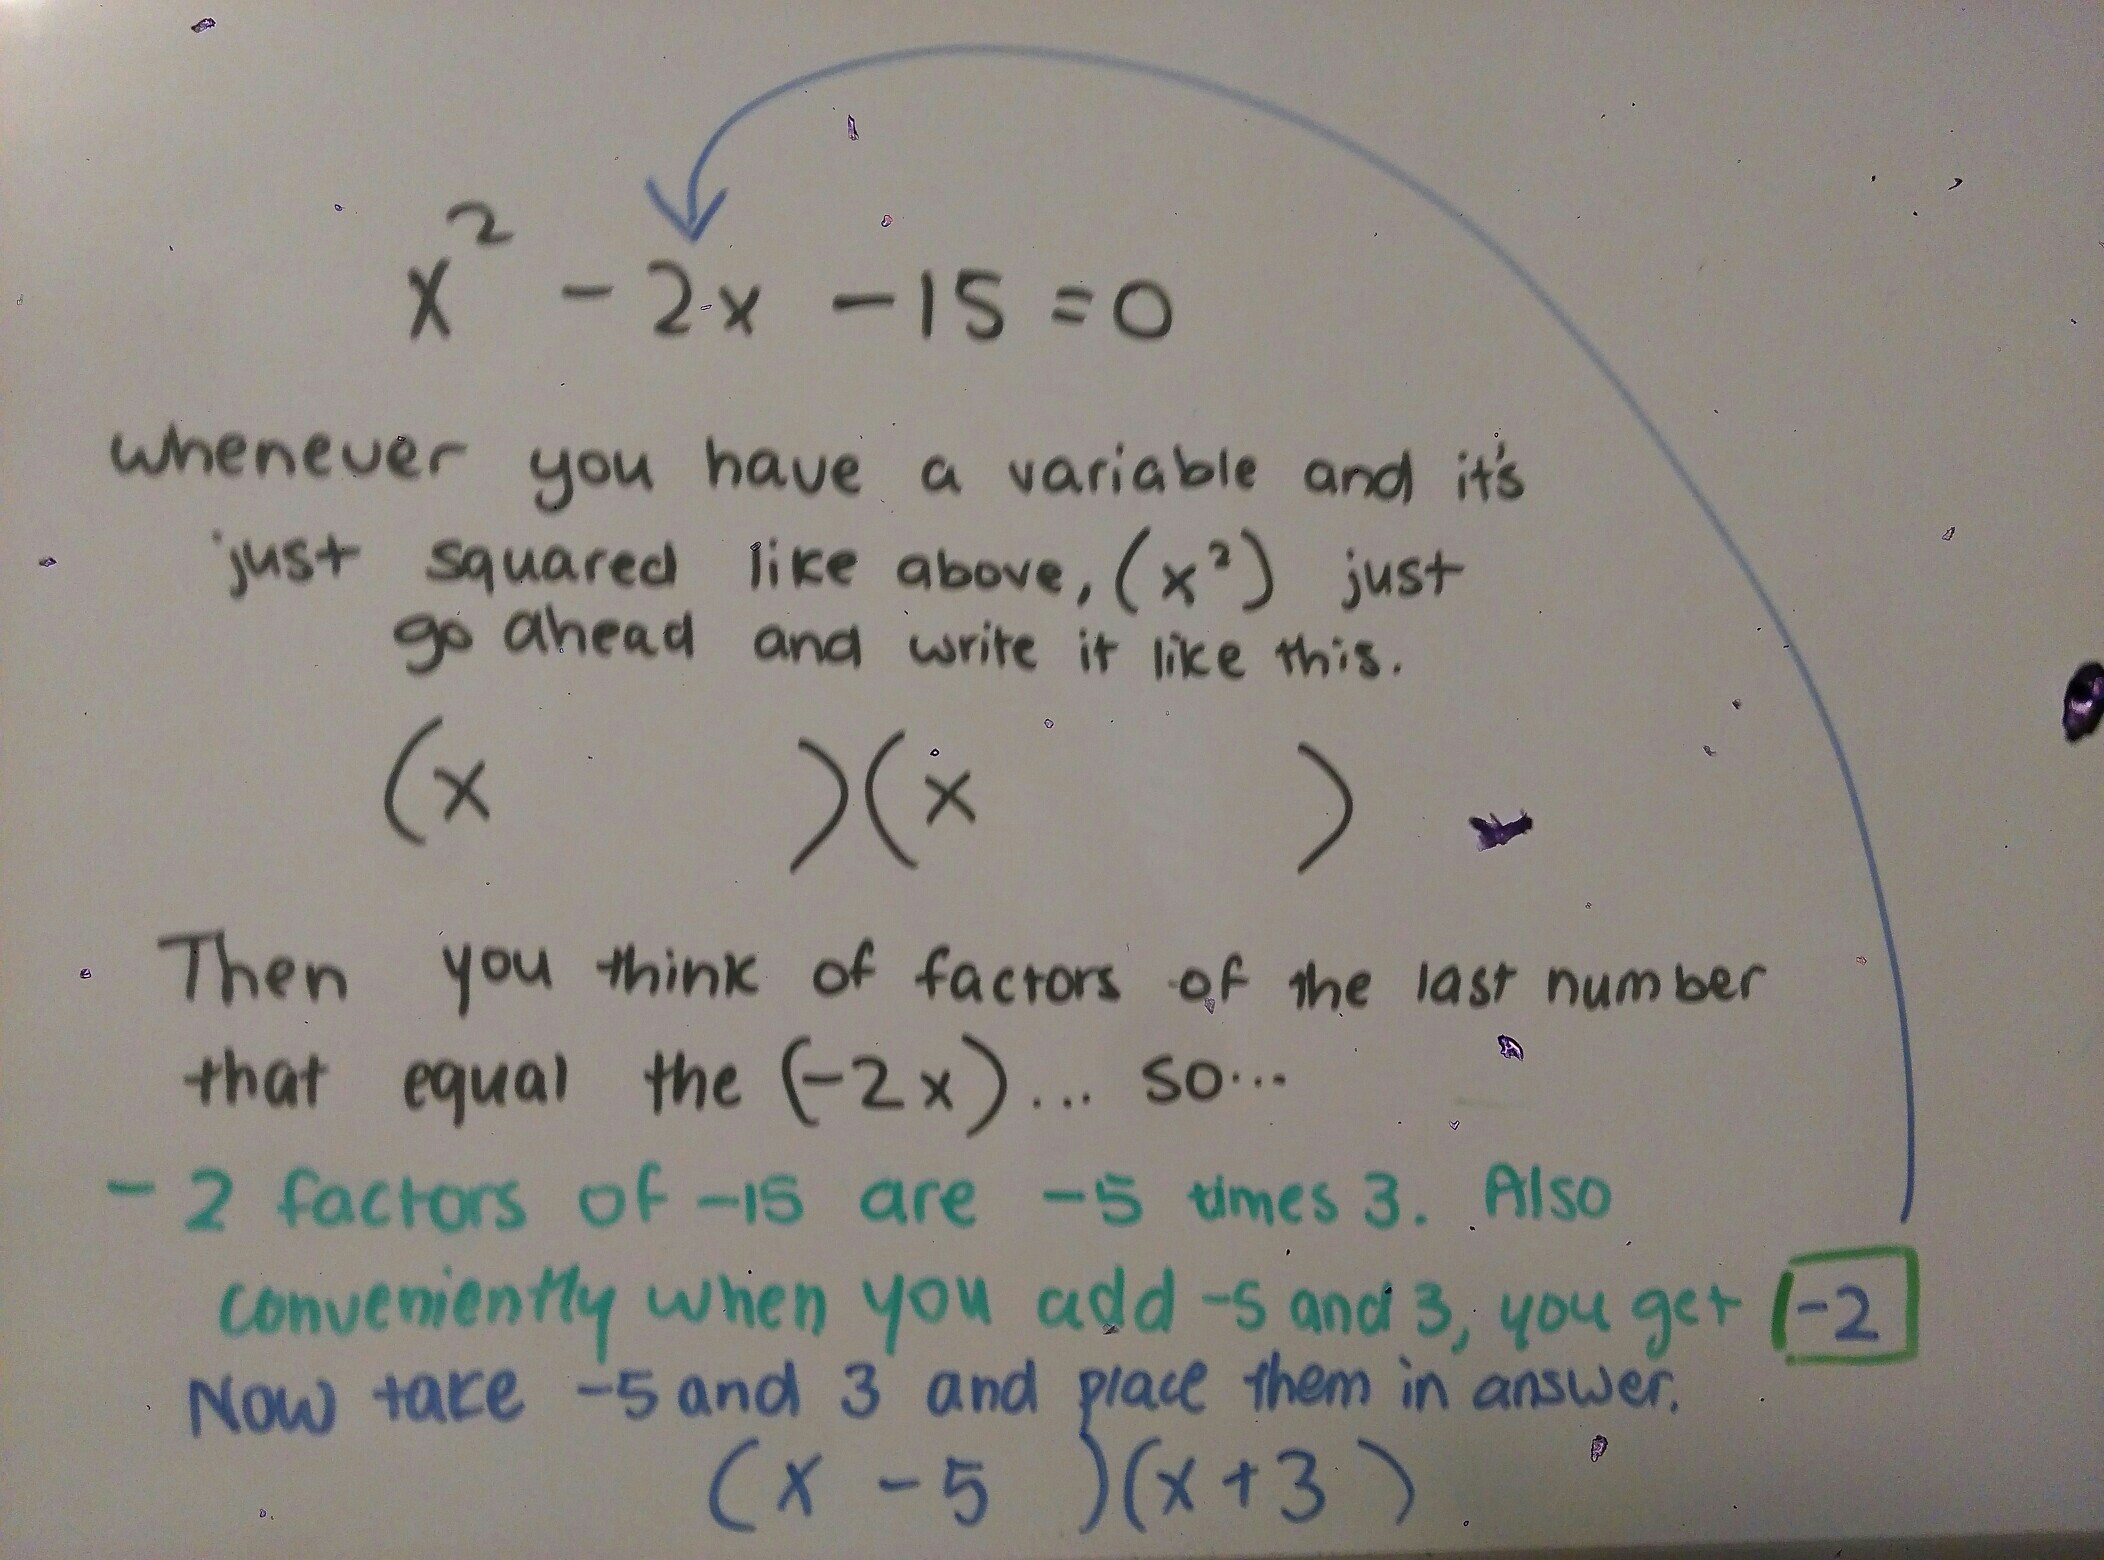 x² - 2x - 15 = 0
whenever you have a variable and it's
just squared like above, (x²) just
go ahead and write it like this.
(x )(x )
Then you think of factors of the last number
that equal the (-2x)... so...
- 2 factors of -15 are -5 times 3. Also
conveniently when you add -5 and 3, you get -2
Now take -5 and 3 and place them in answer.
(x - 5 )(x + 3 )